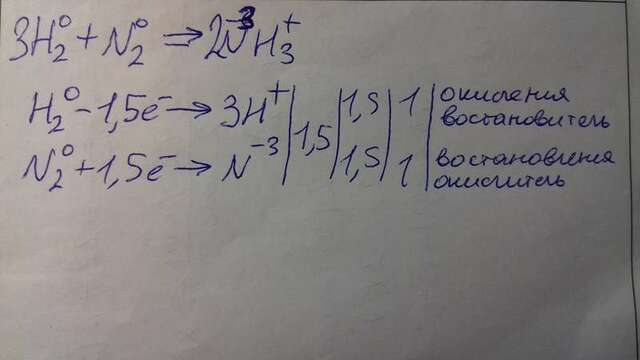 3H₂⁰ + N₂⁰ ⇒ 2N⁻³H₃⁺
H₂⁰ - 1,5e⁻ → 3H⁺ | 1,5 | 1,5 | 1 | окисления
востановитель
N₂⁰ + 1,5e⁻ → N⁻³ | 1,5 | 1 | востановления
окислитель